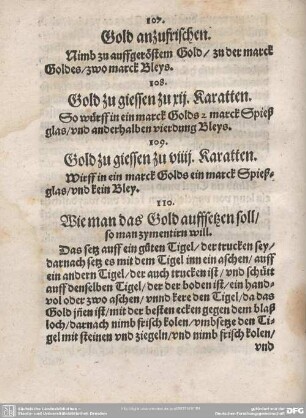 107.
Gold anzufrischen.
Nimb zu auffgeröstem Gold/ zu der marck
Goldes/ zwo marck Bleys.
108.
Gold zu giessen zu xij. Karatten.
So würff in ein marck Golds 2 marck Spieß
glas/ vnd anderhalben vierdung Bleys.
109.
Gold zu giessen zu viiij. Karatten.
Wirff in ein marck Golds ein marck Spieß-
glas/ vnd kein Bley.
110.
Wie man das Gold auffsetzen soll/
so man zymentirn will.
Das setz auff ein gůten Tigel/ der trucken sey/
darnach setz es mit dem Tigel inn ein aschen/ auff
ein andern Tigel/ der auch trucken ist/ vnd schütt
auff denselben Tigel/ der der boden ist/ ein hand-
vol oder zwo aschen/ vnnd kere den Tigel/ da das
Gold jñen ist/ mit der besten ecken gegen dem blaß
loch/ darnach nimb frisch kolen/ vmbsetze den Ti-
gel mit steinen vnd ziegeln/ vnd nimb frisch kolen/
vnd